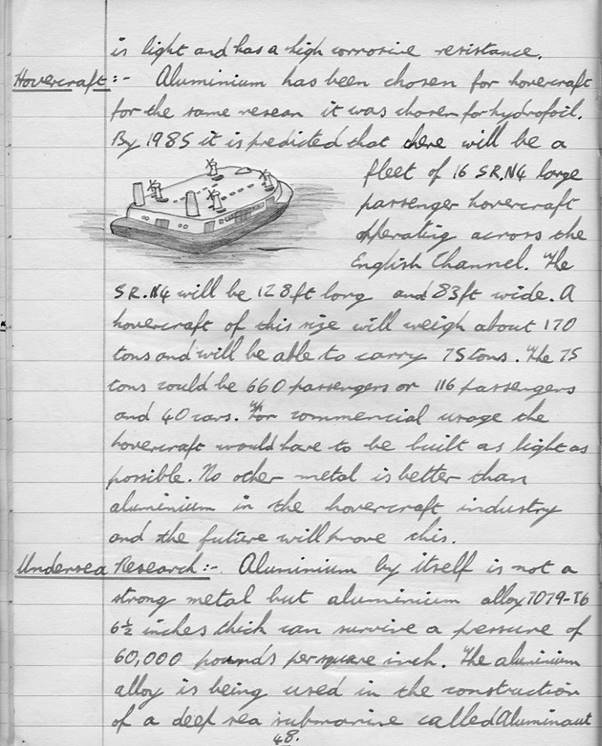 is light and has a high corrosive resistance.
Hovercraft:- Aluminium has been chosen for hovercraft
for the same reason it was chosen for hydrofoil.
By 1985 it is predicted that there will be a
fleet of 16 SR.N4 large
passenger hovercraft
operating across the
English Channel. The
SR.N4 will be 128ft long and 83ft wide. A
hovercraft of this size will weigh about 170
tons and will be able to carry 75 tons. The 75
tons could be 660 passengers or 116 passengers
and 40 cars. For commercial usage the
hovercraft would have to be built as light as
possible. No other metal is better than
aluminium in the hovercraft industry
and the future will prove this.
Undersea Research:- Aluminium by itself is not a
strong metal but aluminium alloy 7079-T6
6½ inches thick can survive a pressure of
60,000 pounds per square inch. The aluminium
alloy is being used in the construction
of a deep sea submarine called Aluminaut
48.